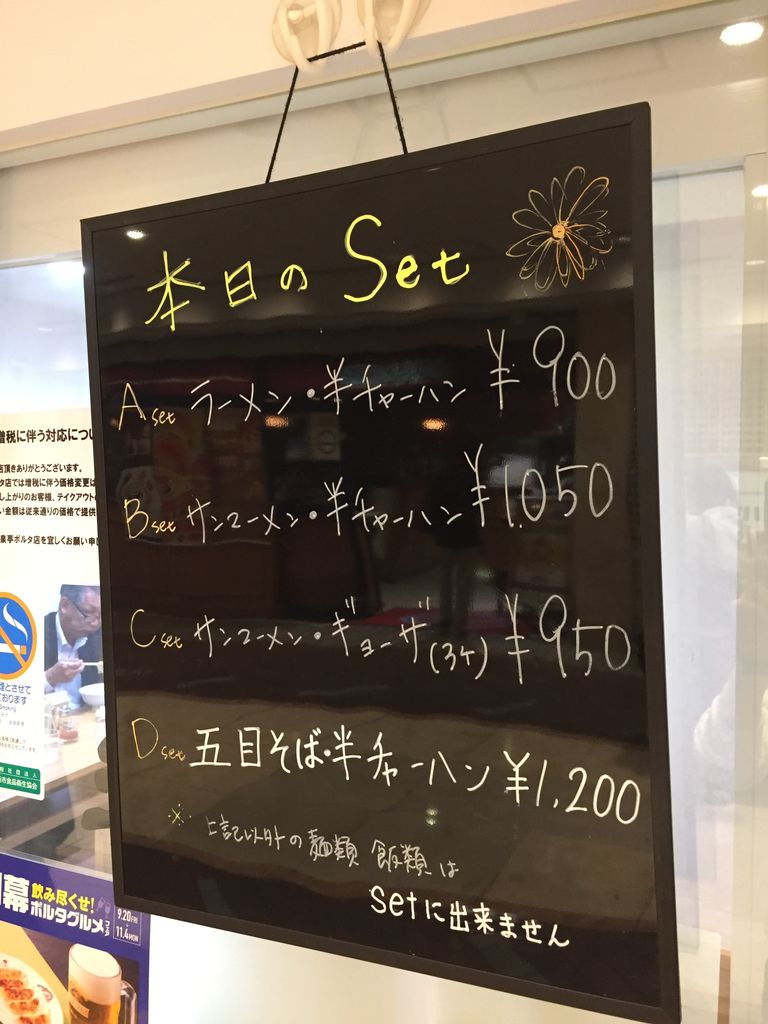 本日のSet
Aset ラーメン・半チャーハン ¥900
Bset サンマーメン・半チャーハン ¥1.050
Cset サンマーメン・ギョーザ(3ケ) ¥950
Dset 五目そば・半チャーハン ¥1,200
※ 上記以外の麺類 飯類は
setに出来ません
増税に伴う対応につい
店頂きありがとうございます。
タ店では増税に伴う価格変更は
し上がりのお客様、テイクアウトの
い金額は従来通りの価格で提供
泉亭ポルタ店を宜しくお願い申
煙とさせて
ております
市食品衛生協会
幕 飲み尽くせ!
ポルタグルメフェスタ
9.20FRI
11.4MON